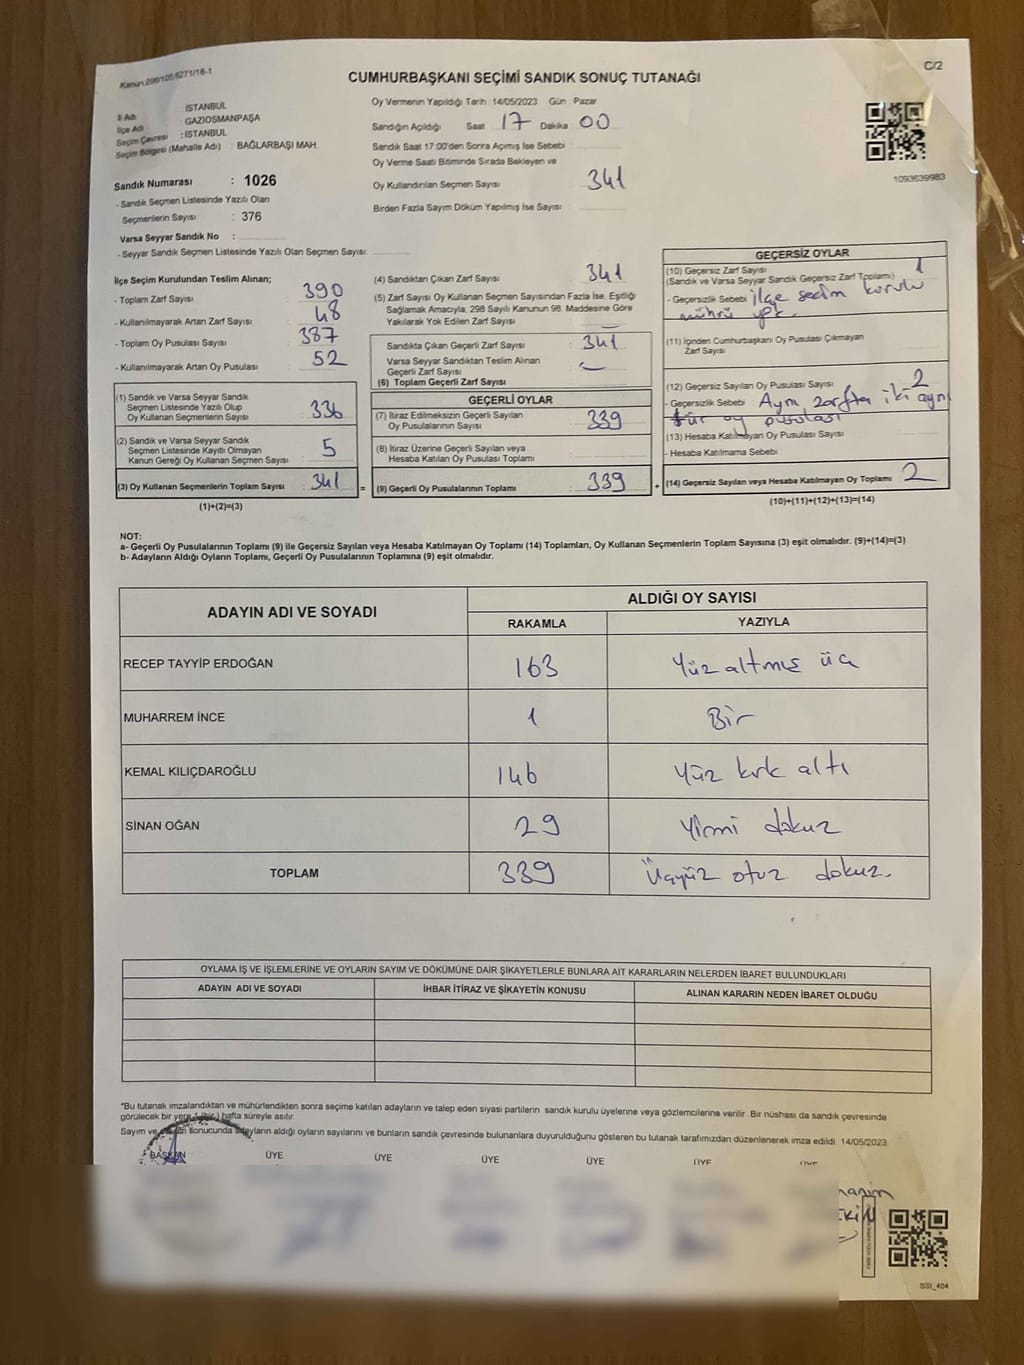 Kanun:298/105,6271/16-1
C/2
CUMHURBAŞKANI SEÇİMİ SANDIK SONUÇ TUTANAĞI
İl Adı İSTANBUL
İlçe Adı GAZİOSMANPAŞA
Seçim Çevresi : İSTANBUL
Seçim Bölgesi (Mahalle Adı) : BAĞLARBAŞI MAH.
Sandık Numarası : 1026
- Sandık Seçmen Listesinde Yazılı Olan
Seçmenlerin Sayısı : 376
Varsa Seyyar Sandık No :
- Seyyar Sandık Seçmen Listesinde Yazılı Olan Seçmen Sayısı:
Oy Vermenin Yapıldığı Tarih : 14/05/2023 Gün : Pazar
Sandığın Açıldığı Saat 17 Dakika 00
Sandık Saat 17:00'den Sonra Açımış İse Sebebi :
Oy Verme Saati Bitiminde Sırada Bekleyen ve
Oy Kullandırılan Seçmen Sayısı : 341
Birden Fazla Sayım Döküm Yapılmış İse Sayısı :
1093639983
İlçe Seçim Kurulundan Teslim Alınan;
- Toplam Zarf Sayısı : 390
- Kullanılmayarak Artan Zarf Sayısı : 48
- Toplam Oy Pusulası Sayısı : 387
- Kullanılmayarak Artan Oy Pusulası : 52
(1) Sandık ve Varsa Seyyar Sandık
Seçmen Listesinde Yazılı Olup
Oy Kullanan Seçmenlerin Sayısı : 336
(2) Sandık ve Varsa Seyyar Sandık
Seçmen Listesinde Kayıtlı Olmayan
Kanun Gereği Oy Kullanan Seçmen Sayısı : 5
(3) Oy Kullanan Seçmenlerin Toplam Sayısı : 341 =
(1)+(2)=(3)
(4) Sandıktan Çıkan Zarf Sayısı : 341
(5) Zarf Sayısı Oy Kullanan Seçmen Sayısından Fazla İse, Eşitliği
Sağlamak Amacıyla; 298 Sayılı Kanunun 98. Maddesine Göre
Yakılarak Yok Edilen Zarf Sayısı : –
Sandıkta Çıkan Geçerli Zarf Sayısı : 341
Varsa Seyyar Sandıktan Teslim Alınan
Geçerli Zarf Sayısı : –
(6) Toplam Geçerli Zarf Sayısı
GEÇERLİ OYLAR
(7) İtiraz Edilmeksizin Geçerli Sayılan
Oy Pusulalarının Sayısı : 339
(8) İtiraz Üzerine Geçerli Sayılan veya
Hesaba Katılan Oy Pusulası Toplamı :
(9) Geçerli Oy Pusulalarının Toplamı : 339 +
GEÇERSİZ OYLAR
(10) Geçersiz Zarf Sayısı : 1
(Sandık ve Varsa Seyyar Sandık Geçersiz Zarf Toplamı)
- Geçersizlik Sebebi : ilçe seçim kurulu
mührü yok.
(11) İçinden Cumhurbaşkanı Oy Pusulası Çıkmayan
Zarf Sayısı
(12) Geçersiz Sayılan Oy Pusulası Sayısı : 2
- Geçersizlik Sebebi : Aynı zarfta iki ayrı
tür oy pusulası
(13) Hesaba Katılmayan Oy Pusulası Sayısı :
- Hesaba Katılmama Sebebi :
(14) Geçersiz Sayılan veya Hesaba Katılmayan Oy Toplamı : 2
(10)+(11)+(12)+(13)=(14)
NOT:
a- Geçerli Oy Pusulalarının Toplamı (9) ile Geçersiz Sayılan veya Hesaba Katılmayan Oy Toplamı (14) Toplamları, Oy Kullanan Seçmenlerin Toplam Sayısına (3) eşit olmalıdır. (9)+(14)=(3)
b- Adayların Aldığı Oyların Toplamı, Geçerli Oy Pusulalarının Toplamına (9) eşit olmalıdır.
ADAYIN ADI VE SOYADI
ALDIĞI OY SAYISI
RAKAMLA YAZIYLA
RECEP TAYYİP ERDOĞAN 163 Yüz altmış üç
MUHARREM İNCE 1 Bir
KEMAL KILIÇDAROĞLU 146 Yüz kırk altı
SİNAN OĞAN 29 Yirmi dokuz
TOPLAM 339 Üçyüz otuz dokuz.
OYLAMA İŞ VE İŞLEMLERİNE VE OYLARIN SAYIM VE DÖKÜMÜNE DAİR ŞİKAYETLERLE BUNLARA AİT KARARLARIN NELERDEN İBARET BULUNDUKLARI
ADAYIN ADI VE SOYADI İHBAR İTİRAZ VE ŞİKAYETİN KONUSU ALINAN KARARIN NEDEN İBARET OLDUĞU
*Bu tutanak imzalandıktan ve mühürlendikten sonra seçime katılan adayların ve talep eden siyasi partilerin sandık kurulu üyelerine veya gözlemcilerine verilir. Bir nüshası da sandık çevresinde
görülecek bir yere 1 (bir) hafta süreyle asılır.
Sayım ve sonucunda adayların aldığı oyların sayılarını ve bunların sandık çevresinde bulunanlara duyurulduğunu gösteren bu tutanak tarafımızdan düzenlenerek imza edildi. 14/05/2023
BAŞKAN ÜYE ÜYE ÜYE ÜYE ÜYE ÜYE
SSI_404